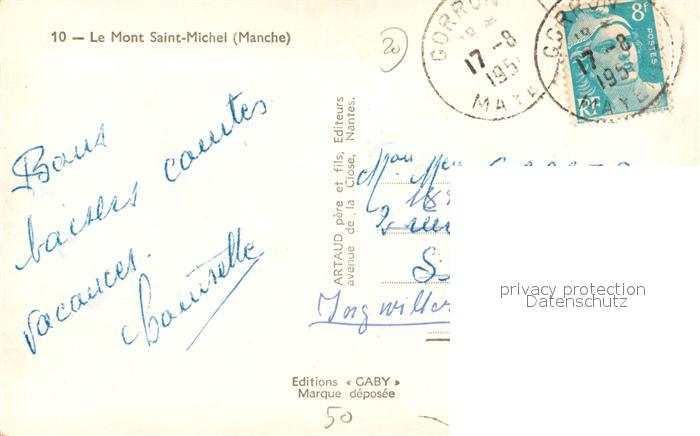 10 — Le Mont Saint-Michel (Manche)
20
GORRON
18 *
17-8
195
MAYE
GORRON
18 *
17-8
195
MAYE
8F
POSTES
RF
Bons
baisers
vacances.
ARTAUD père et fils, Editeurs
avenue de la Close, Nantes.
Ingwiller
privacy protection
Datenschutz
Editions « GABY »
Marque déposée
50